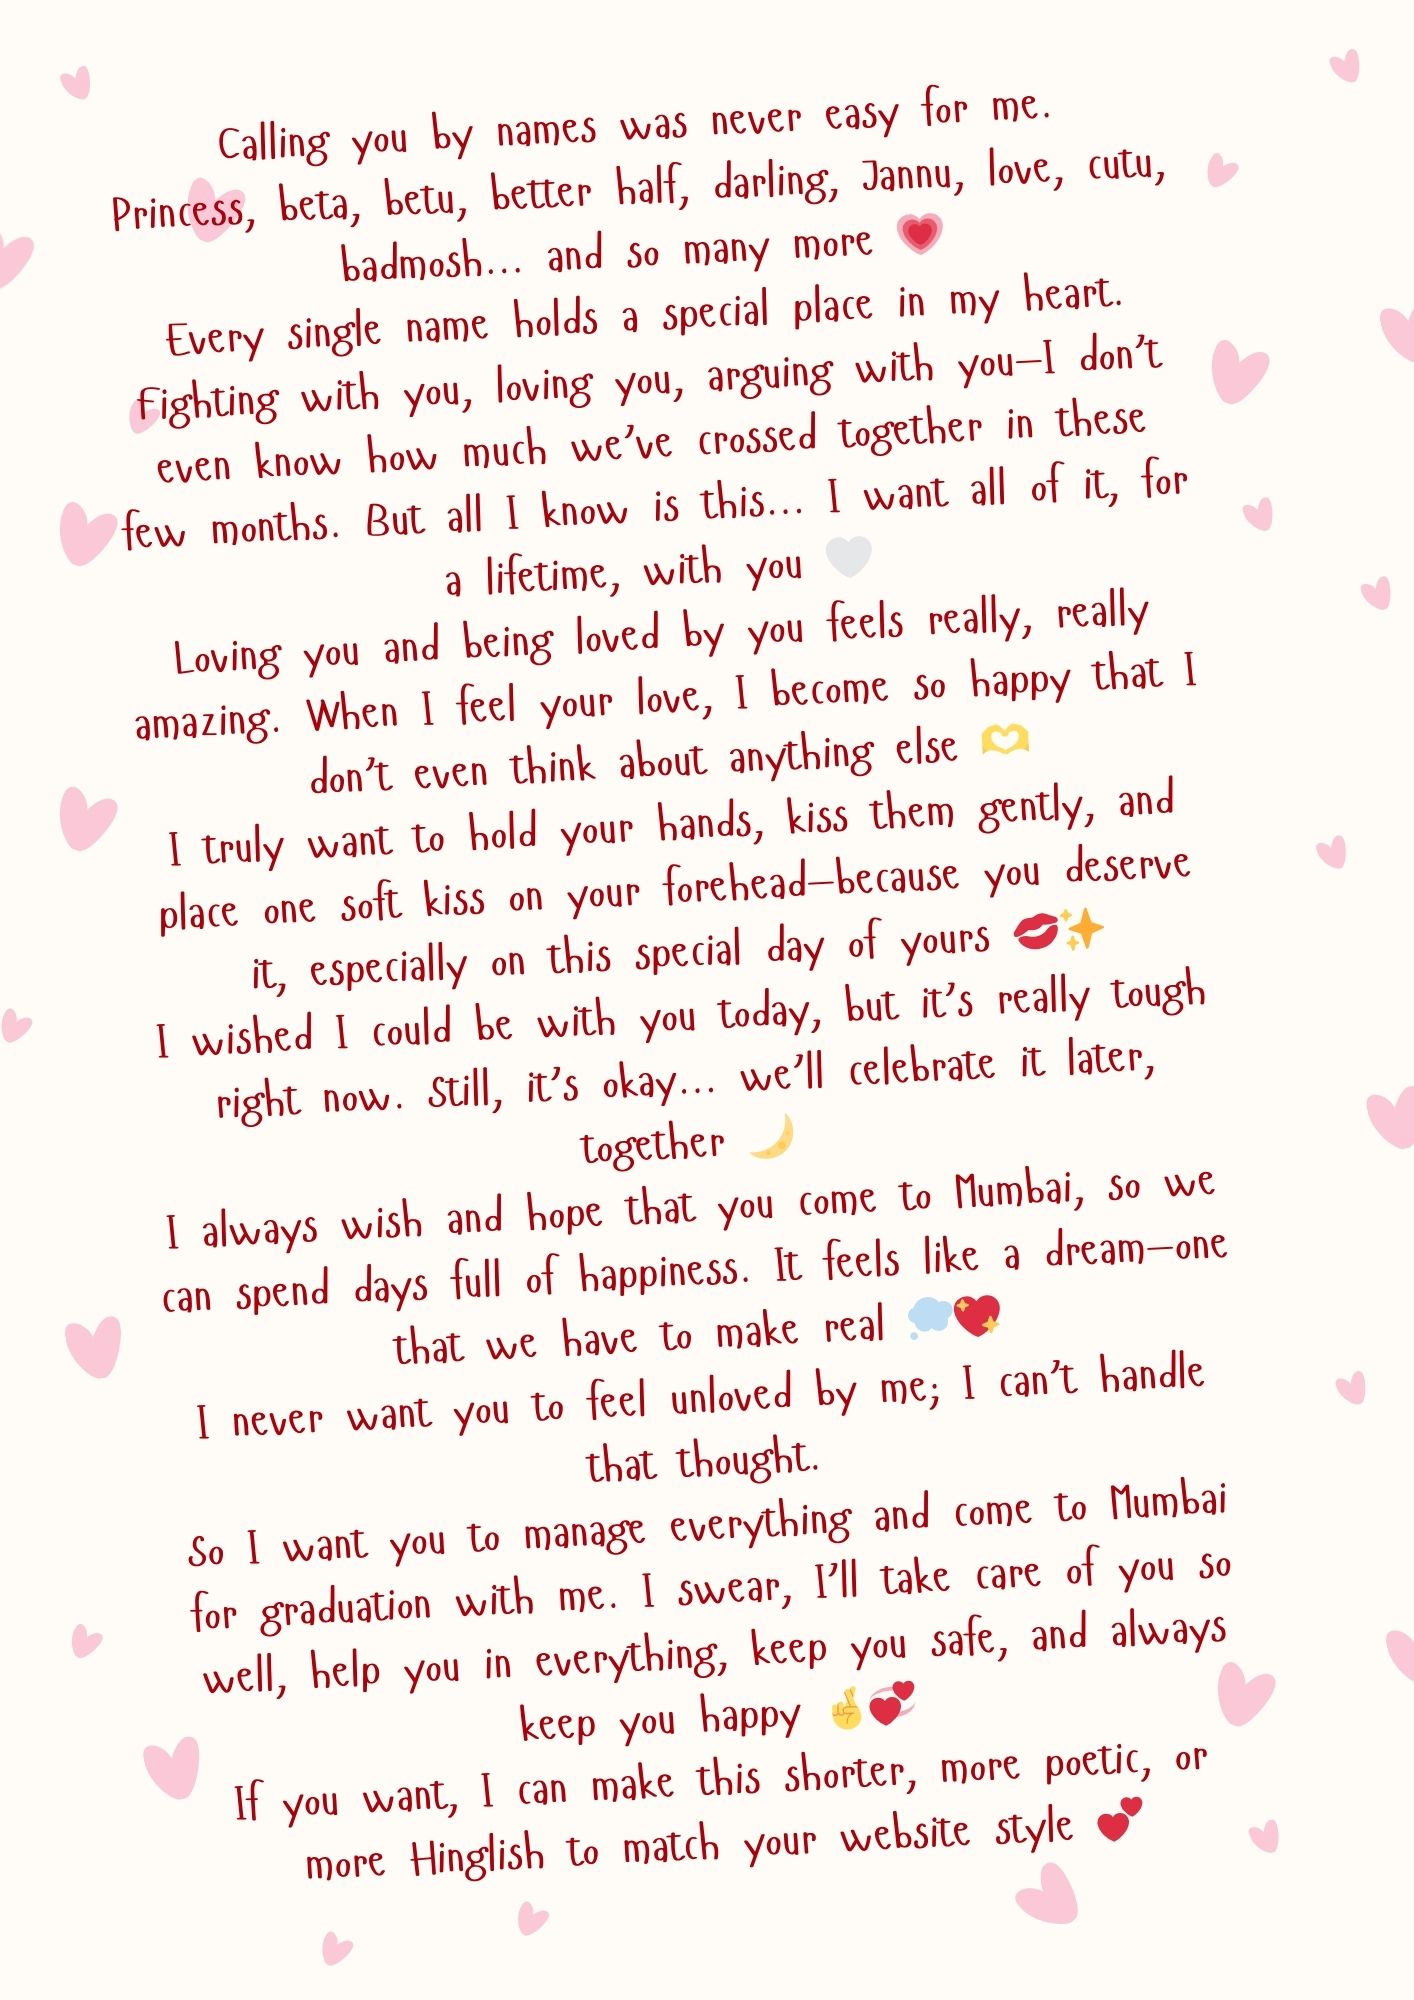 Calling you by names was never easy for me.
Princess, beta, betu, better half, darling, Jannu, love, cutu,
badmosh... and so many more 💗
Every single name holds a special place in my heart.
Fighting with you, loving you, arguing with you—I don't
even know how much we've crossed together in these
few months. But all I know is this... I want all of it, for
a lifetime, with you 🤍
Loving you and being loved by you feels really, really
amazing. When I feel your love, I become so happy that I
don't even think about anything else 🫶
I truly want to hold your hands, kiss them gently, and
place one soft kiss on your forehead—because you deserve
it, especially on this special day of yours 💋✨
I wished I could be with you today, but it's really tough
right now. Still, it's okay... we'll celebrate it later,
together 🌙
I always wish and hope that you come to Mumbai, so we
can spend days full of happiness. It feels like a dream—one
that we have to make real 💭💖
I never want you to feel unloved by me; I can't handle
that thought.
So I want you to manage everything and come to Mumbai
for graduation with me. I swear, I'll take care of you so
well, help you in everything, keep you safe, and always
keep you happy 🤞💞
If you want, I can make this shorter, more poetic, or
more Hinglish to match your website style 💕